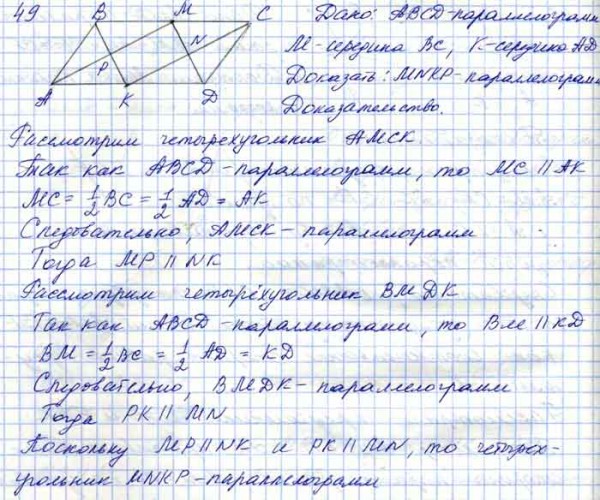 49 B M C Дано: ABCD-параллелограмм
N M-середина BC, K-середина AD
P Доказать: MNKP-параллелограмм
A K D Доказательство.
Рассмотрим четырехугольник AMCK
Так как ABCD-параллелограмм, то MC || AK
MC = 1/2 BC = 1/2 AD = AK
Следовательно, AMCK - параллелограмм
Тогда MP || NK
Рассмотрим четырёхугольник BMДK
Так как ABCD-параллелограмм, то BM || KD
BM = 1/2 BC = 1/2 AD = KD
Следовательно, BMДK- параллелограмм
Тогда PK || MN
Поскольку MP || NK и PK || MN, то четырех-
угольник MNKP-параллелограмм